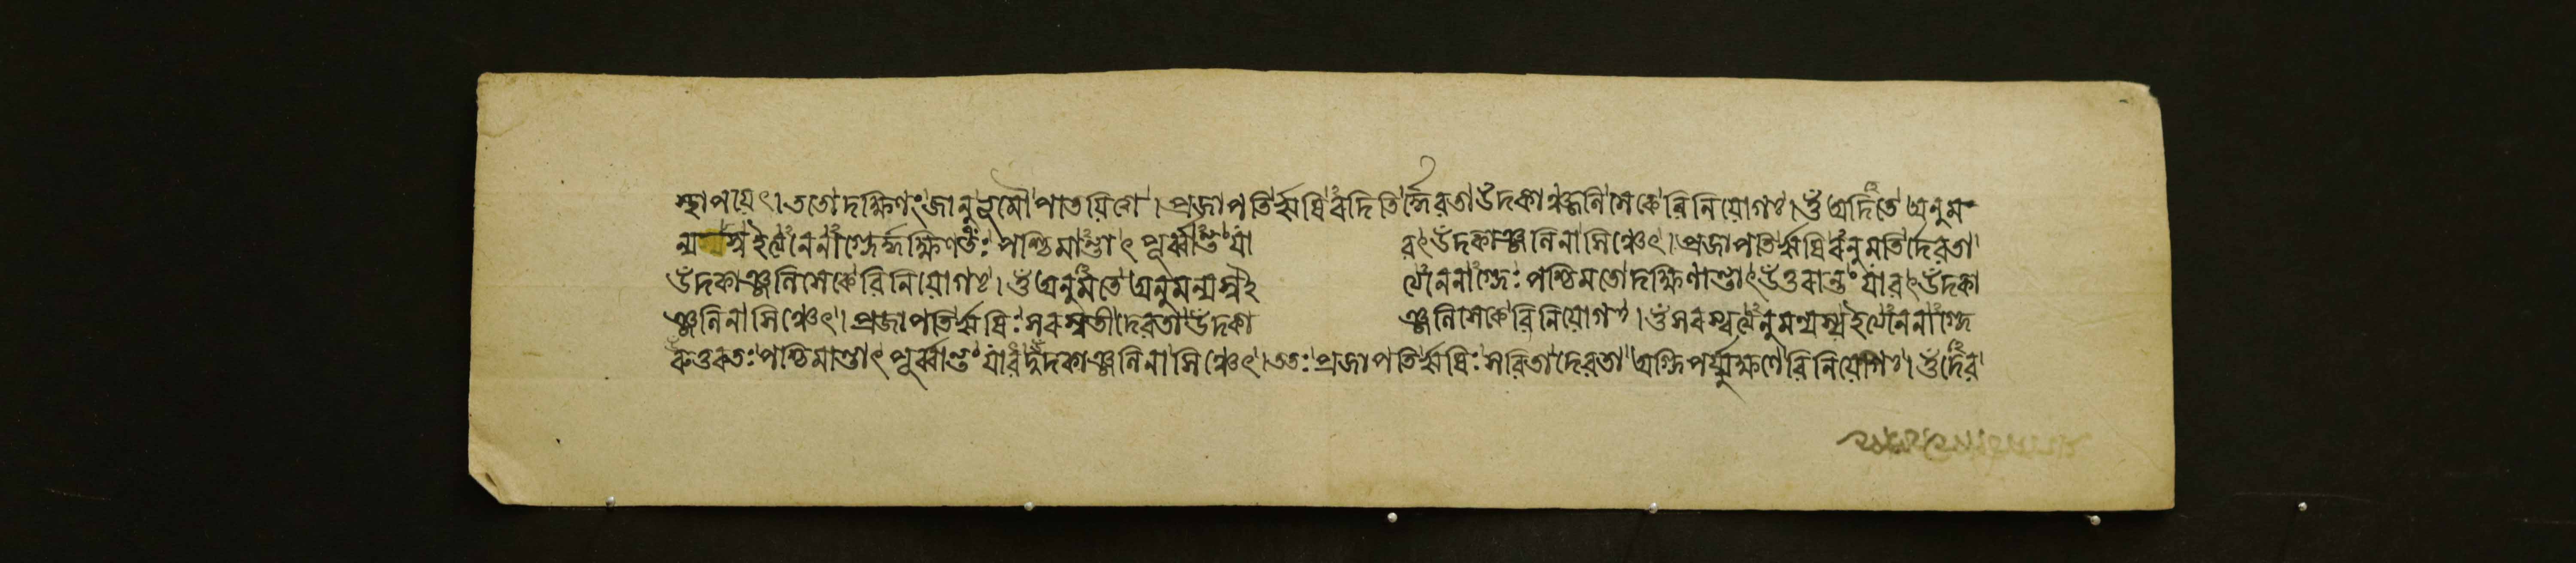 স্থাপয়েৎ। ততো দক্ষিণং জানু ভূমৌ পাতয়িত্বা। প্রজাপতির্ঋষিরদিতির্দ্দেবতা উদকাঞ্জলিসেকে বিনিয়োগঃ। ওঁ অদিতে অনুম
ন্যস্ব ইত্যনেনাগ্নের্দ্দক্ষিণতঃ পশ্চিমান্তাৎ পূর্ব্বান্তং যা বৎ উদকাঞ্জলিনা সিঞ্চেৎ। প্রজাপতির্ঋষিরনুমতির্দেবতা
উদকাঞ্জলিসেকে বিনিয়োগঃ। ওঁ অনুমতে অনুমন্যস্ব ই ত্যনেনাগ্নেঃ পশ্চিমতো দক্ষিণান্তাৎ উত্তরান্তং যাবৎ উদকা
ঞ্জলিনা সিঞ্চেৎ। প্রজাপতির্ঋষিঃ সরস্বতী দেবতা উদকা ঞ্জলিসেকে বিনিয়োগঃ। ওঁ সরস্বত্যনুমন্যস্ব ইত্যনেনাগ্নে
রুত্তরতঃ পশ্চিমান্তাৎ পূর্ব্বান্তং যাবদুদকাঞ্জলিনা সিঞ্চেৎ। ততঃ প্রজাপতির্ঋষিঃ সবিতা দেবতা অগ্নিপর্য্যুক্ষণে বিনিয়োগঃ। ওঁ দেব